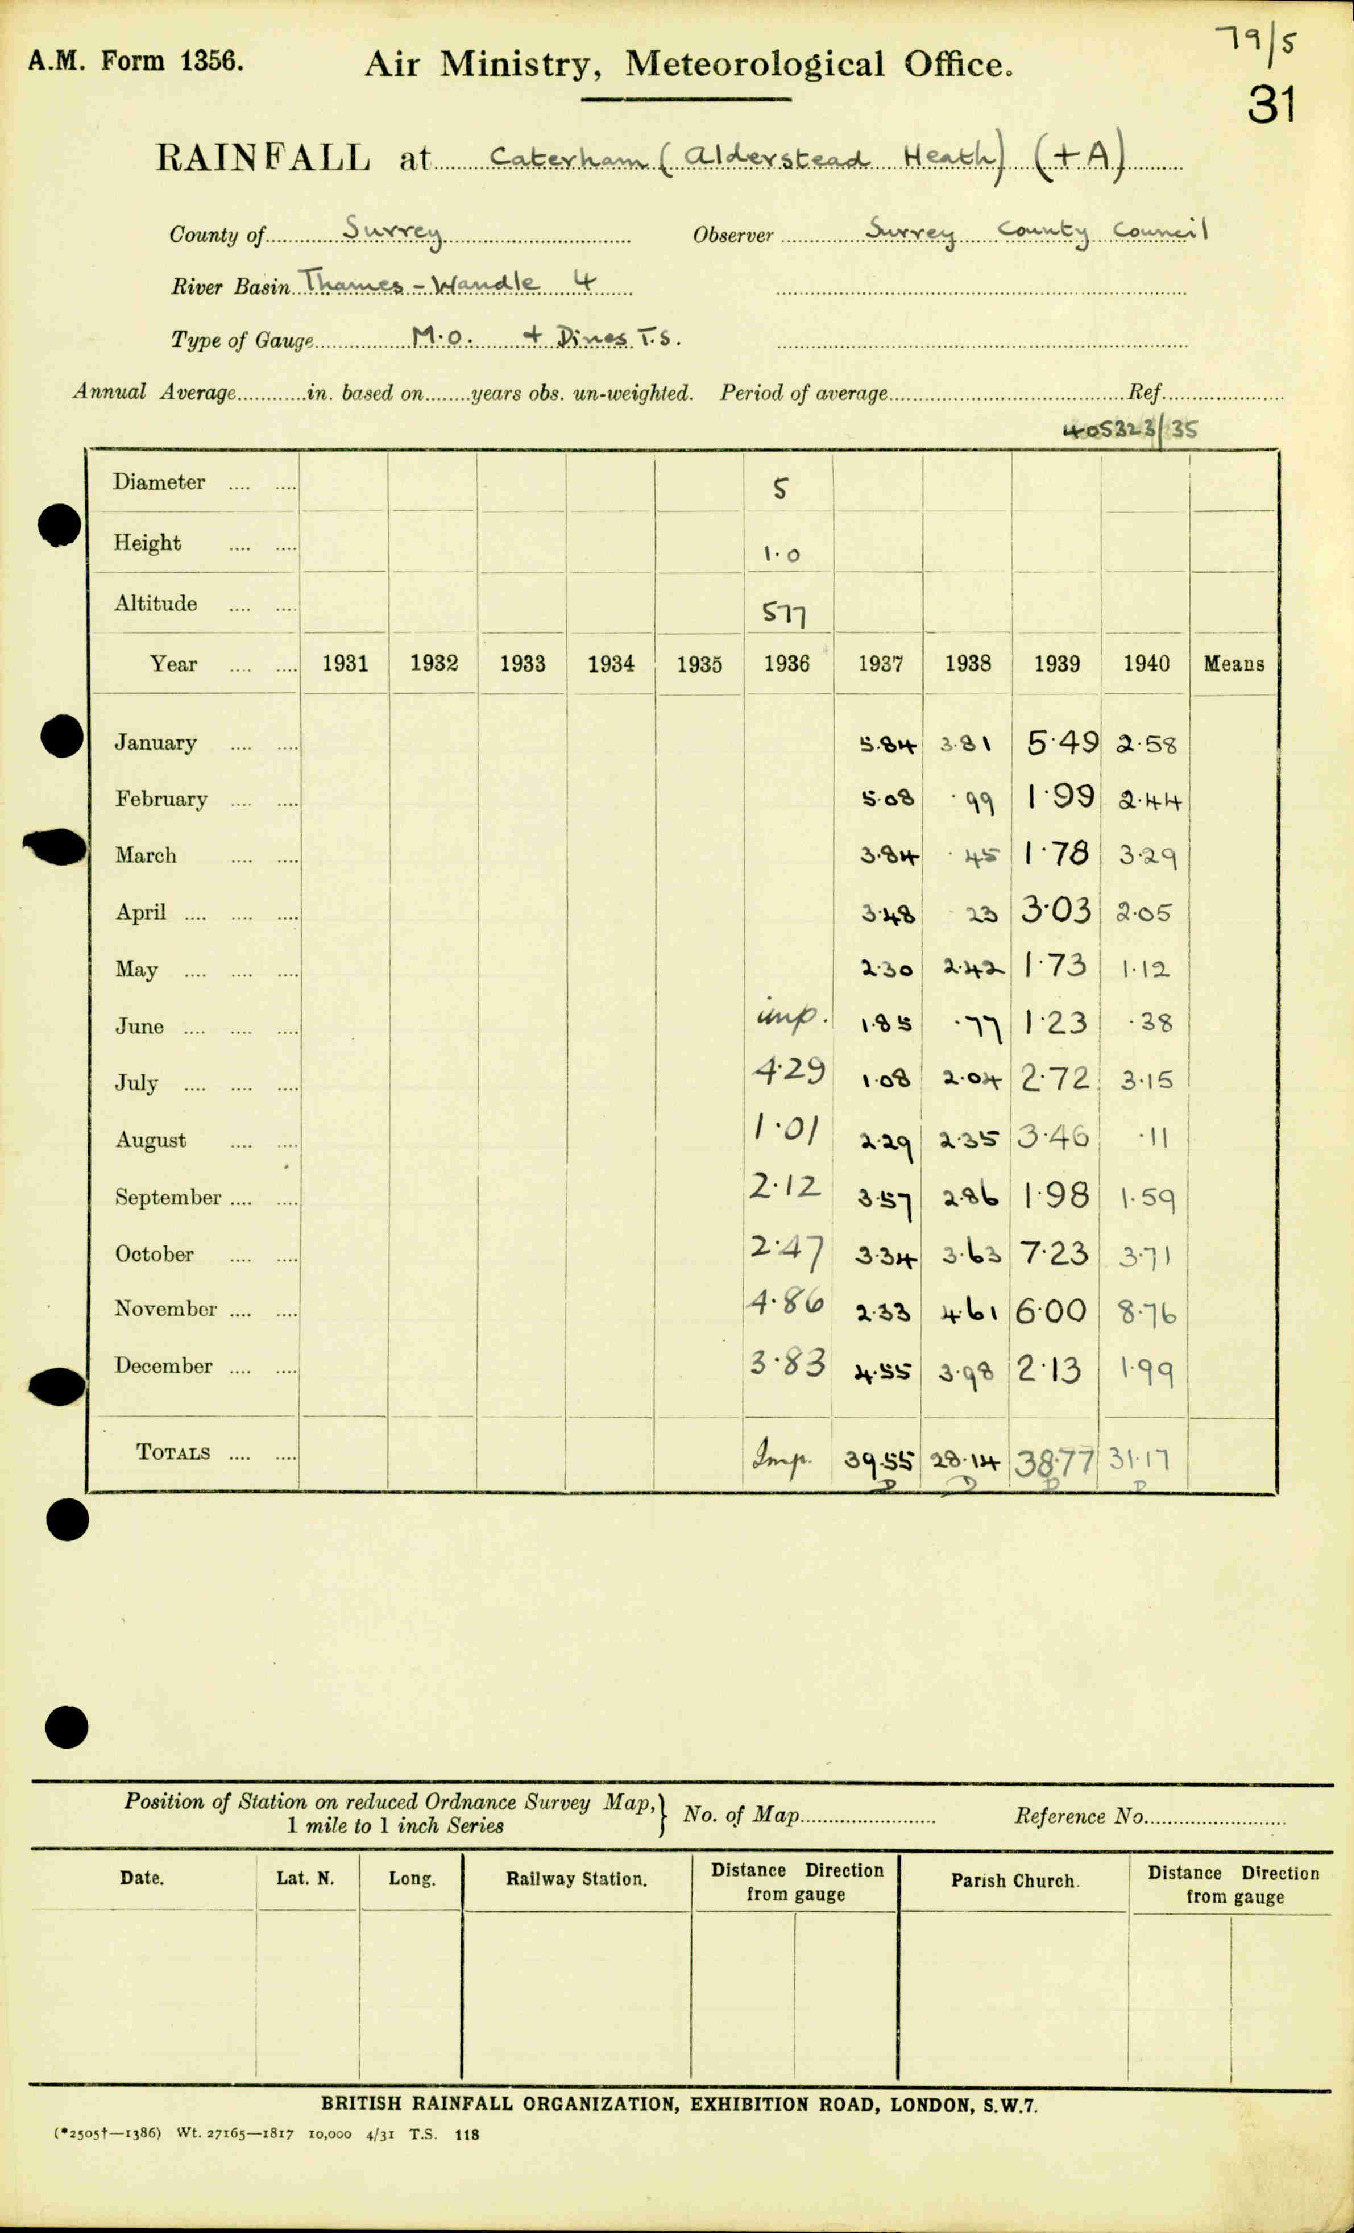 79/5
A.M. Form 1356. Air Ministry, Meteorological Office.
31
RAINFALL at Caterham (Alderstead Heath) (+A)
County of Surrey Observer Surrey County Council
River Basin Thames - Wandle 4
Type of Gauge M.O. + Dines T.S.
Annual Average............in. based on........years obs. un-weighted. Period of average............Ref............
405323/35
Diameter .... .... 5
Height .... .... 1.0
Altitude .... .... 577
Year .... .... 1931 1932 1933 1934 1935 1936 1937 1938 1939 1940 Means
January .... .... 5.84 3.81 5.49 2.58
February .... .... 5.08 .99 1.99 2.44
March .... .... 3.84 .45 1.78 3.29
April .... .... .... 3.48 23 3.03 2.05
May .... .... .... 2.30 2.42 1.73 1.12
June .... .... .... imp. 1.85 .77 1.23 .38
July .... .... .... 4.29 1.08 2.04 2.72 3.15
August .... .... 1.01 2.29 2.35 3.46 .11
September .... .... 2.12 3.57 2.86 1.98 1.59
October .... .... 2.47 3.34 3.63 7.23 3.71
November .... .... 4.86 2.33 4.61 6.00 8.76
December .... .... 3.83 4.55 3.98 2.13 1.99
TOTALS .... .... Imp. 39.55 28.14 38.77 31.17
D D D D
Position of Station on reduced Ordnance Survey Map,} No. of Map............ Reference No............
1 mile to 1 inch Series
Date. Lat. N. Long. Railway Station. Distance Direction from gauge Parish Church. Distance Direction from gauge
BRITISH RAINFALL ORGANIZATION, EXHIBITION ROAD, LONDON, S.W.7.
(*2505†—1386) Wt. 27165—1817 10,000 4/31 T.S. 118